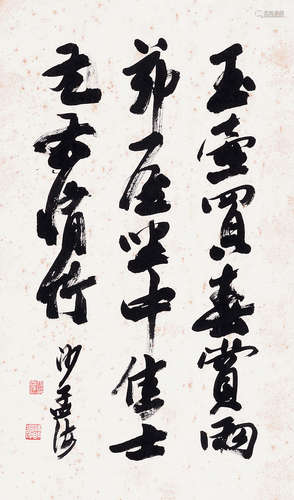 玉壺買春賞雨
茆屋坐中佳士
左右脩竹
沙孟海